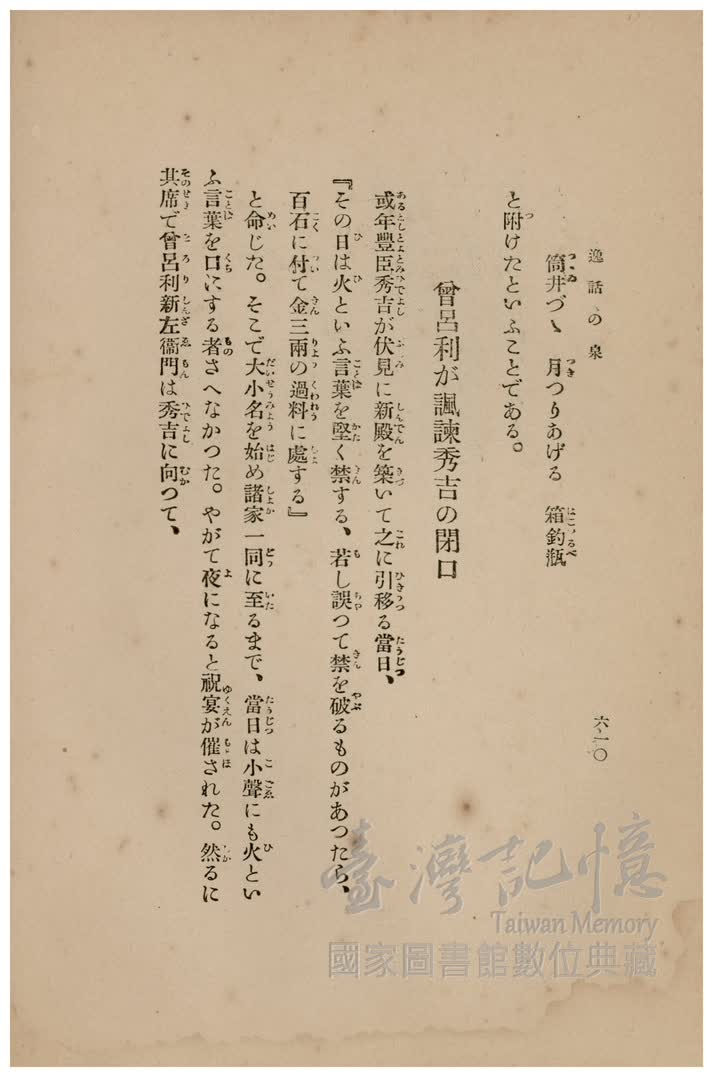 逸話の泉
六一〇
筒井づゝ 月つりあげる 箱釣瓶
と附けたといふことである。
曾呂利が諷諫秀吉の閉口
或年豐臣秀吉が伏見に新殿を築いて之に引移る當日、
『その日は火といふ言葉を堅く禁ずる、若し誤つて禁を破るものがあつたら、
百石に付て金三兩の過料に處する』
と命じた。そこで大小名を始め諸家一同に至るまで、當日は小聲にも火とい
ふ言葉を口にする者さへなかつた。やがて夜になると祝宴が催された。然るに
其席で曾呂利新左衞門は秀吉に向つて、
臺灣記憶
Taiwan Memory
國家圖書館數位典藏